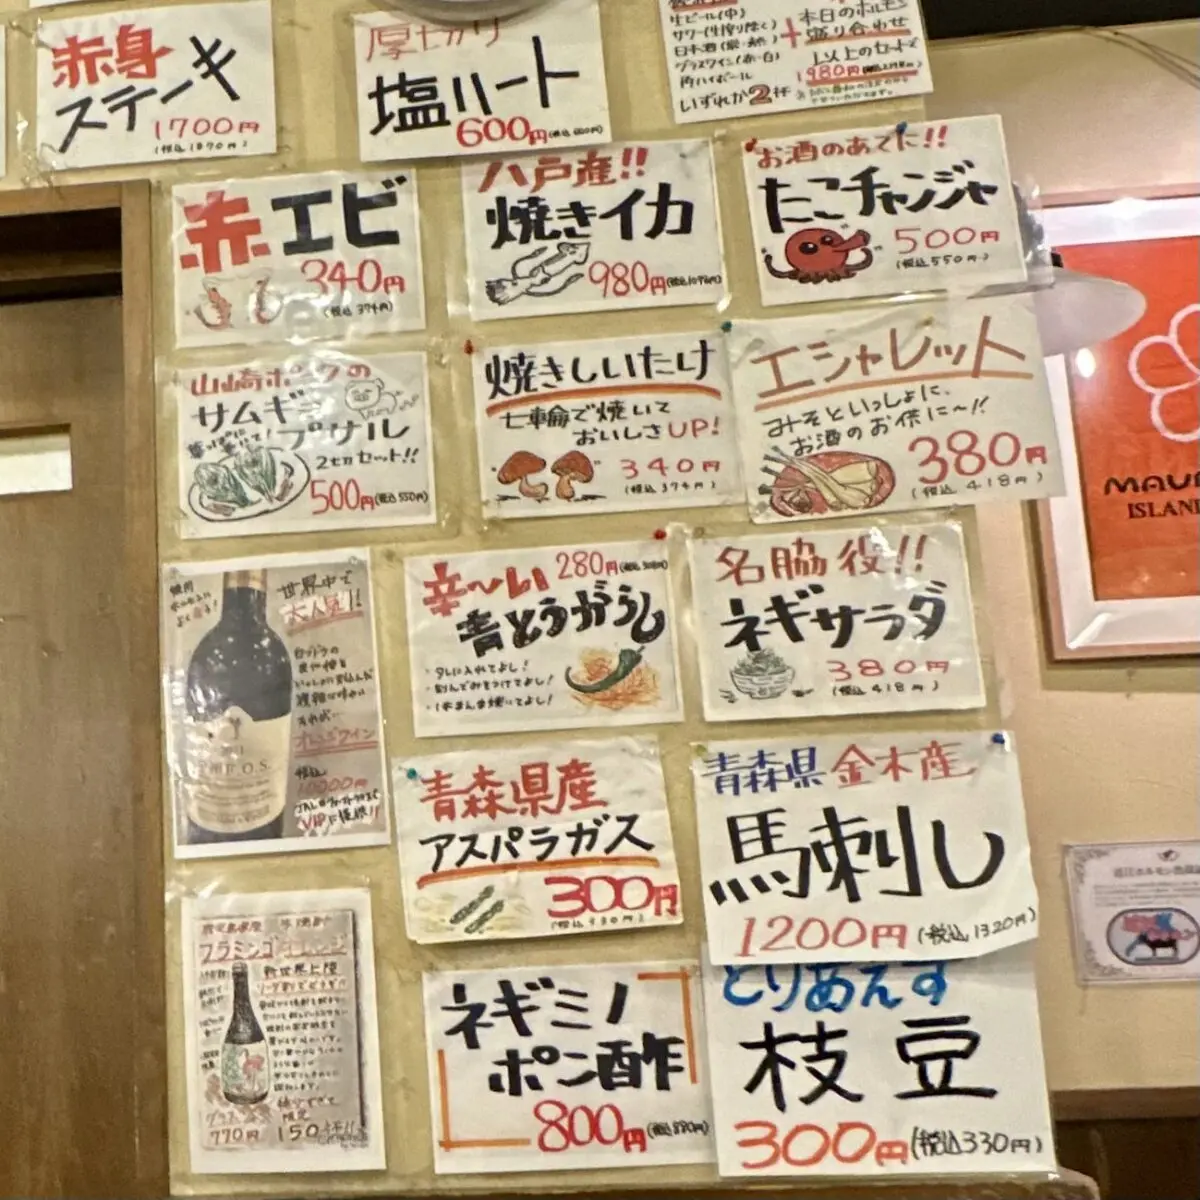 赤身
ステーキ
1700円
(税込1870円)
厚切り
塩ハート
600円(税込660円)
生ビール(中)
サワー(生搾り除く)
グラスワイン(赤・白)
角ハイボール
いずれか2杯
+
本日のホルモン
盛り合わせ
1980円
赤エビ
340円
(税込374円)
八戸産!!
焼きイカ
980円(税込1078円)
お酒のあてに!!
たこチャンジャ
500円
(税込550円)
山崎ポークの
サムギョプサル
2切セット!!
500円(税込550円)
焼きしいたけ
七輪で焼いて
おいしさUP!
340円
(税込374円)
エシャレット
みそといっしょに、
お酒のお供に〜!!
380円
(税込418円)
世界中で
大人気!!
オレンジワイン
税込
10000円
VIPに提供!!
辛〜い
280円(税込308円)
青とうがらし
・タレに入れてよし!
・刻んでみそつけてよし!
・1本まんま焼いてよし!
名脇役!!
ネギサラダ
380円
(税込418円)
青森県産
アスパラガス
300円
(税込330円)
青森県 金木産
馬刺し
1200円(税込1320円)
鹿児島県産 芋焼酎
フラミンゴオレンジ
新世界上陸
グラス
770円
ネギミノ
ポン酢
800円(税込880円)
とりあえず
枝豆
300円(税込330円)
ISLAN